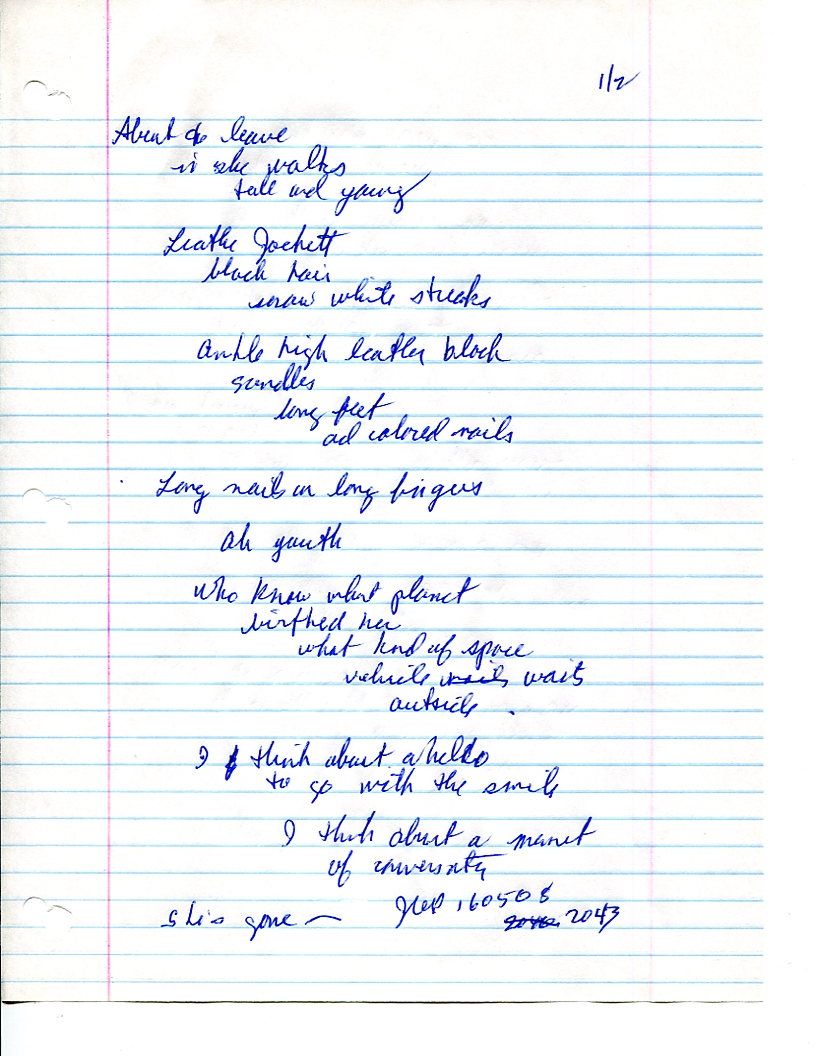 1/2
About to leave
in she walks
tall and young
Leather Jackett
black hair
snow white streaks
Ankle high leather black
sandles
long feet
and colored nails
Long nails on long fingers
Ah youth
Who know what planet
birthed her
what kind of space
vehicle waits
outside .
I think about a hello
to go with the smile
I think about a moment
of conversation
She is gone —
160508
2043